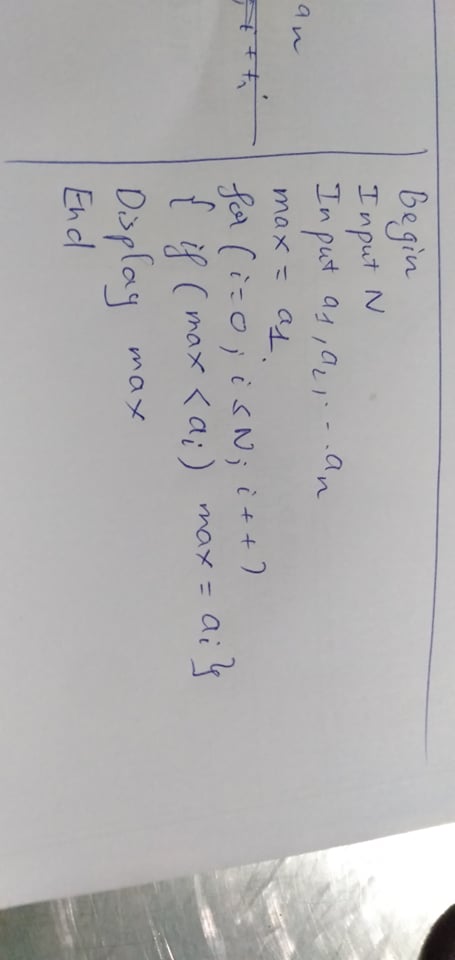 an
i + ti
Begin
Input N
Input a1, a2, - - an
max = a1
for ( i=0; i ≤ N; i++)
{ if ( max < ai) max = ai}
Display max
End